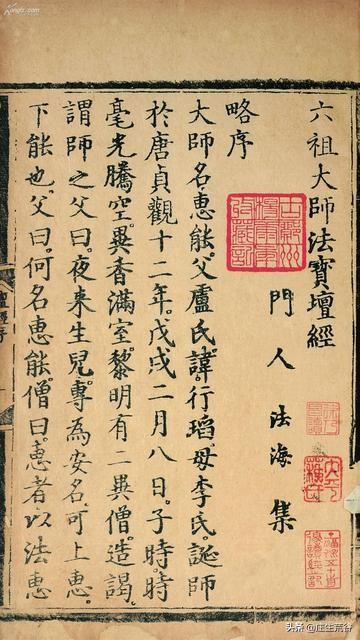 六祖大師法寶壇經
門人 法海 集
略序
大師名惠能。父盧氏。諱行瑫。母李氏。誕師
於唐貞觀十二年。戊戌二月八日。子時時
毫光騰空。異香滿室。黎明有二異僧。造謁。
謂師之父曰。夜来生兒。專為安名。可上惠。
下能也。父曰。何名惠能。僧曰。惠者以法惠
头条 @庄生荒谷